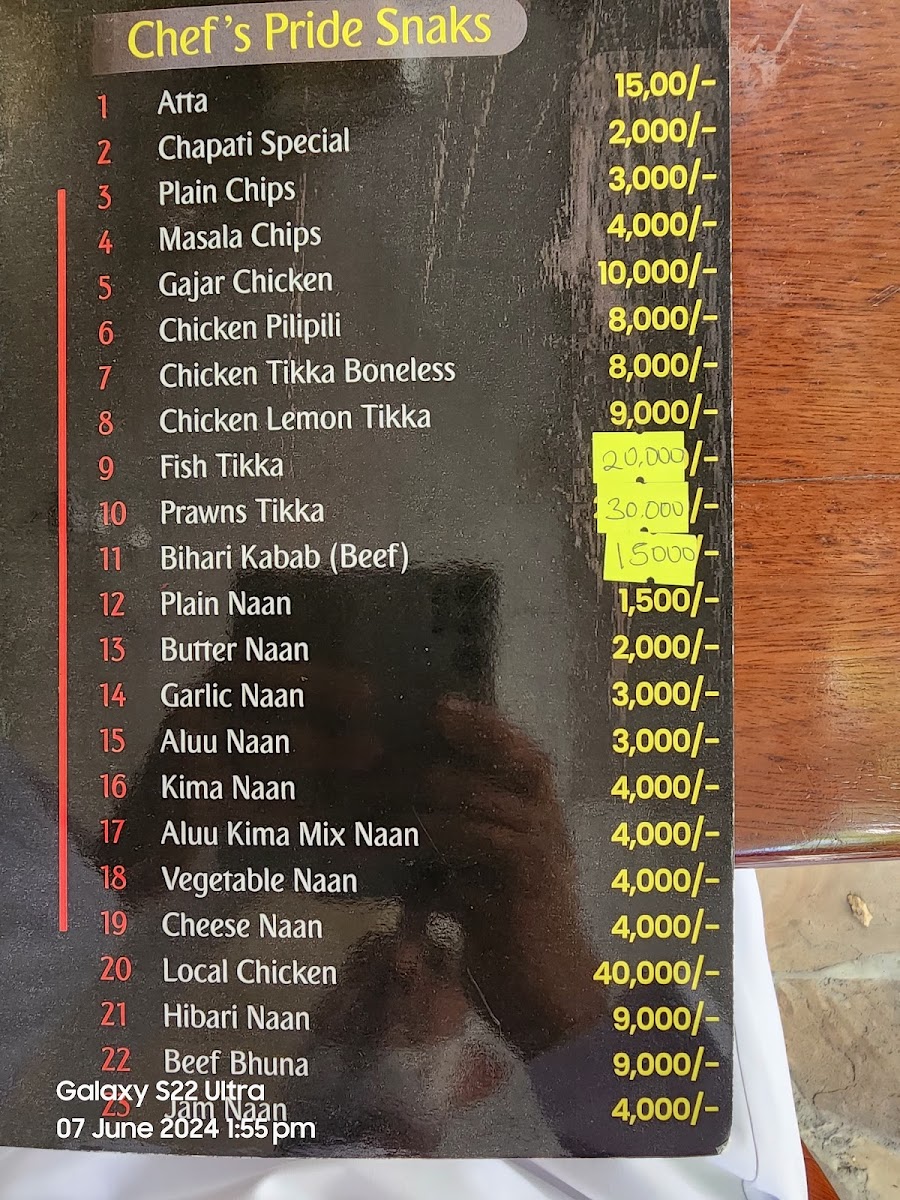 Chef's Pride Snaks
1 Atta 15,00/-
2 Chapati Special 2,000/-
3 Plain Chips 3,000/-
4 Masala Chips 4,000/-
5 Gajar Chicken 10,000/-
6 Chicken Pilipili 8,000/-
7 Chicken Tikka Boneless 8,000/-
8 Chicken Lemon Tikka 9,000/-
9 Fish Tikka 20,000/-
10 Prawns Tikka 30.000/-
11 Bihari Kabab (Beef) 15000/-
12 Plain Naan 1,500/-
13 Butter Naan 2,000/-
14 Garlic Naan 3,000/-
15 Aluu Naan 3,000/-
16 Kima Naan 4,000/-
17 Aluu Kima Mix Naan 4,000/-
18 Vegetable Naan 4,000/-
19 Cheese Naan 4,000/-
20 Local Chicken 40,000/-
21 Hibari Naan 9,000/-
22 Beef Bhuna 9,000/-
23 Jam Naan 4,000/-
Galaxy S22 Ultra
07 June 2024 1:55 pm